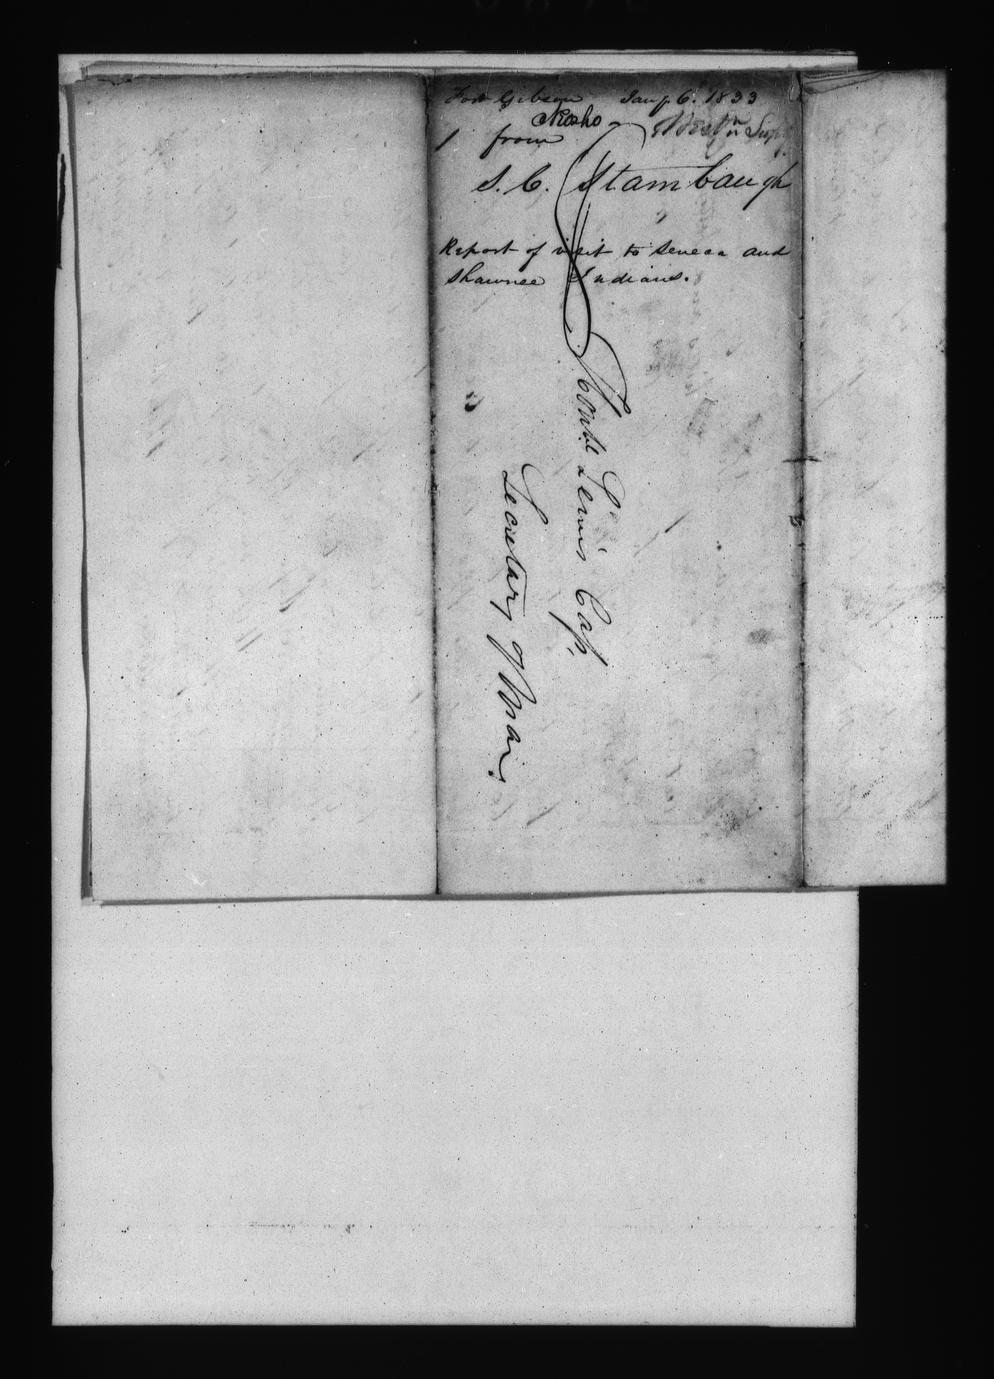 Fort Gibson Jany 6. 1833
Neosho Westn Supt
1 from
S. C. Stambaugh
Report of visit to Seneca and
Shawnee Indians.
Honbl Lewis Cass,
Secretary of War.